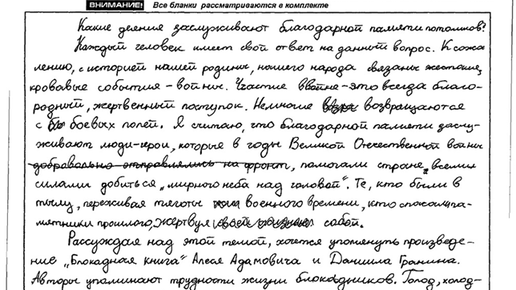 ВНИМАНИЕ! Все бланки рассматриваются в комплекте
Какие деяния заслуживают благодарной памяти потомков?
Каждый человек имеет свой ответ на данный вопрос. К сожа
лению, с историей нашей родины, нашего народа связаны жестокие,
кровавые события - войны. Участие в войне - это всегда благо-
родный, жертвенный поступок. Немногие возвращаются
с боевых полей. Я считаю, что благодарной памяти заслу-
живают люди-герои, которые в годы Великой Отечественной войны
добровольно отправлялись на фронт, помогали стране всеми
силами добиться „мирного неба над головой". Те, кто были в
тылу, переживая тяготы военного времени, кто спасал па-
мятники прошлого, жертвуя собой.
Рассуждая над этой темой, хочется упомянуть произведе-
ние „Блокадная книга" Алеся Адамовича и Даниила Гранина.
Авторы упоминают трудности жизни блокадников. Голод, холод-